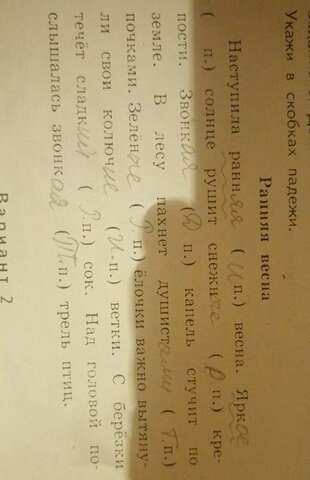 Укажи в скобках падежи.
Ранняя весна
Наступила ранняя (И п.) весна. Яркое
( п.) солнце рушит снежные (Р п.) кре-
пости. Звонкая (Д п.) капель стучит по
земле. В лесу пахнет душистыми (Т.п.)
почками. Зелёные (Р.п.) ёлочки важно вытяну-
ли свои колючие (И.п.) ветки. С берёзки
течёт сладкий ( п.) сок. Над головой по-
слышалась звонкая (П.п.) трель птиц.
Вариант 2